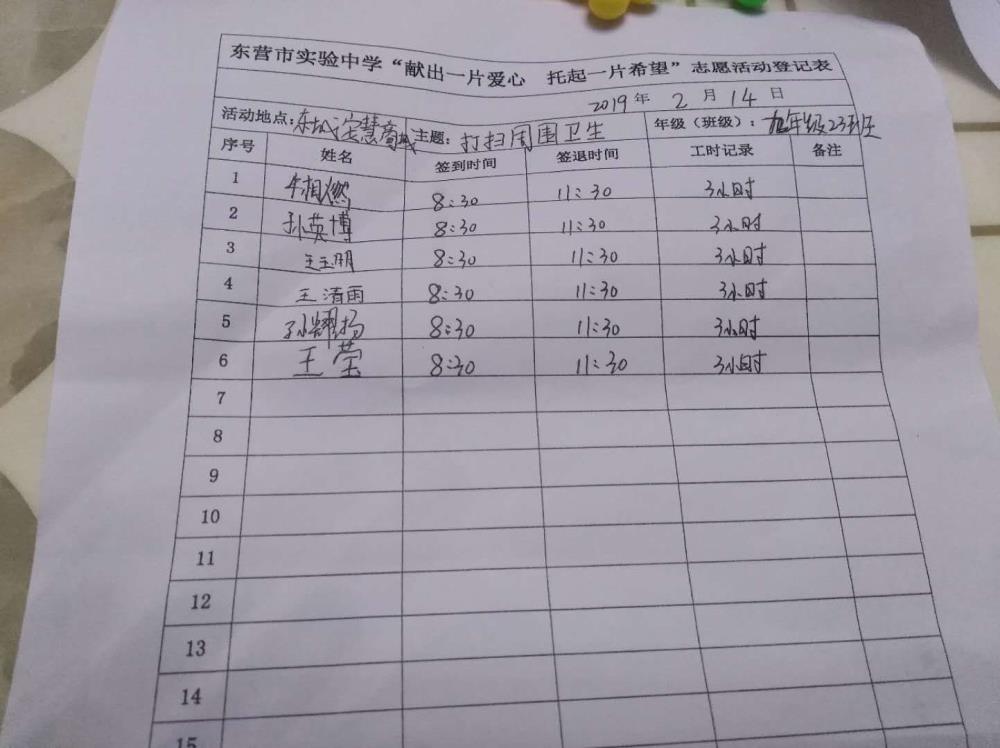 东营市实验中学“献出一片爱心 托起一片希望”志愿活动登记表
2019年 2 月 14 日
活动地点:东城安慧商城 主题:打扫周围卫生 年级(班级):九年级23班
序号 姓名 签到时间 签退时间 工时记录 备注
1 牟相燃 8:30 11:30 3小时
2 孙英博 8:30 11:30 3小时
3 王玉明 8:30 11:30 3小时
4 王清雨 8:30 11:30 3小时
5 孙耀扬 8:30 11:30 3小时
6 王莹 8:30 11:30 3小时
7
8
9
10
11
12
13
14
15